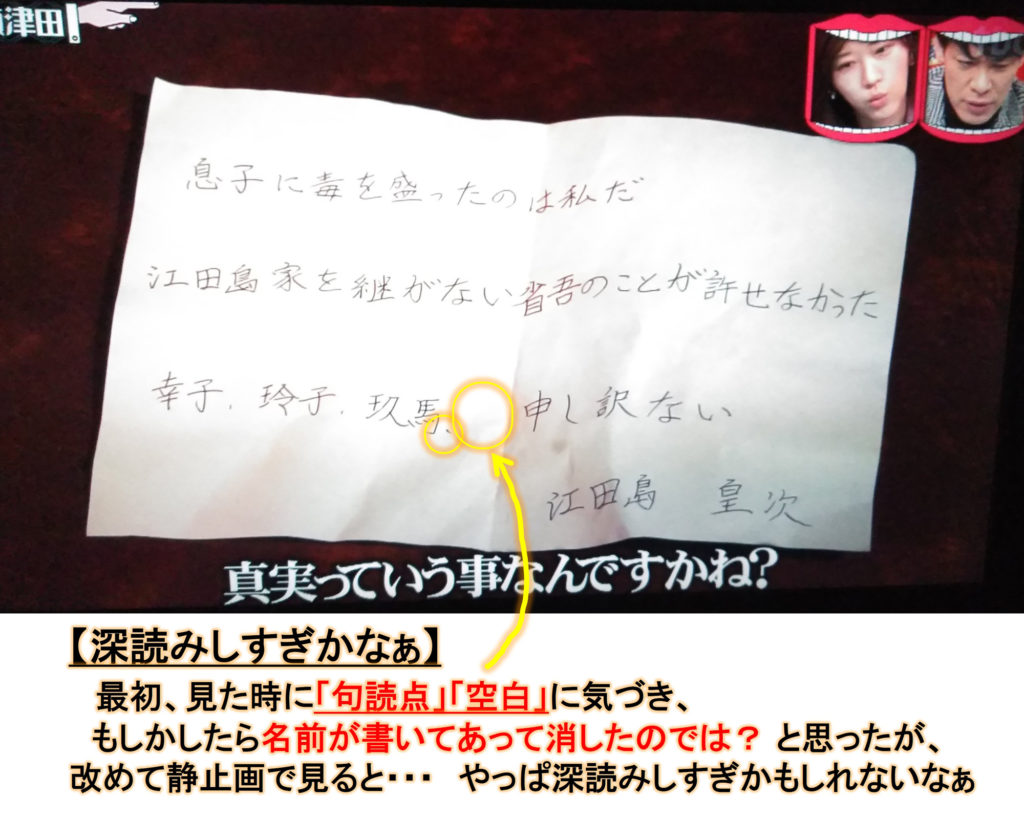 津田
息子に毒を盛ったのは私だ
江田島家を継がない省吾のことが許せなかった
幸子、玲子、玖馬、　申し訳ない
江田島　皇次
真実っていう事なんですかね?
【深読みしすぎかなぁ】
最初、見た時に「句読点」「空白」に気づき、
もしかしたら名前が書いてあって消したのでは？ と思ったが、
改めて静止画で見ると・・・　やっぱ深読みしすぎかもしれないなぁ